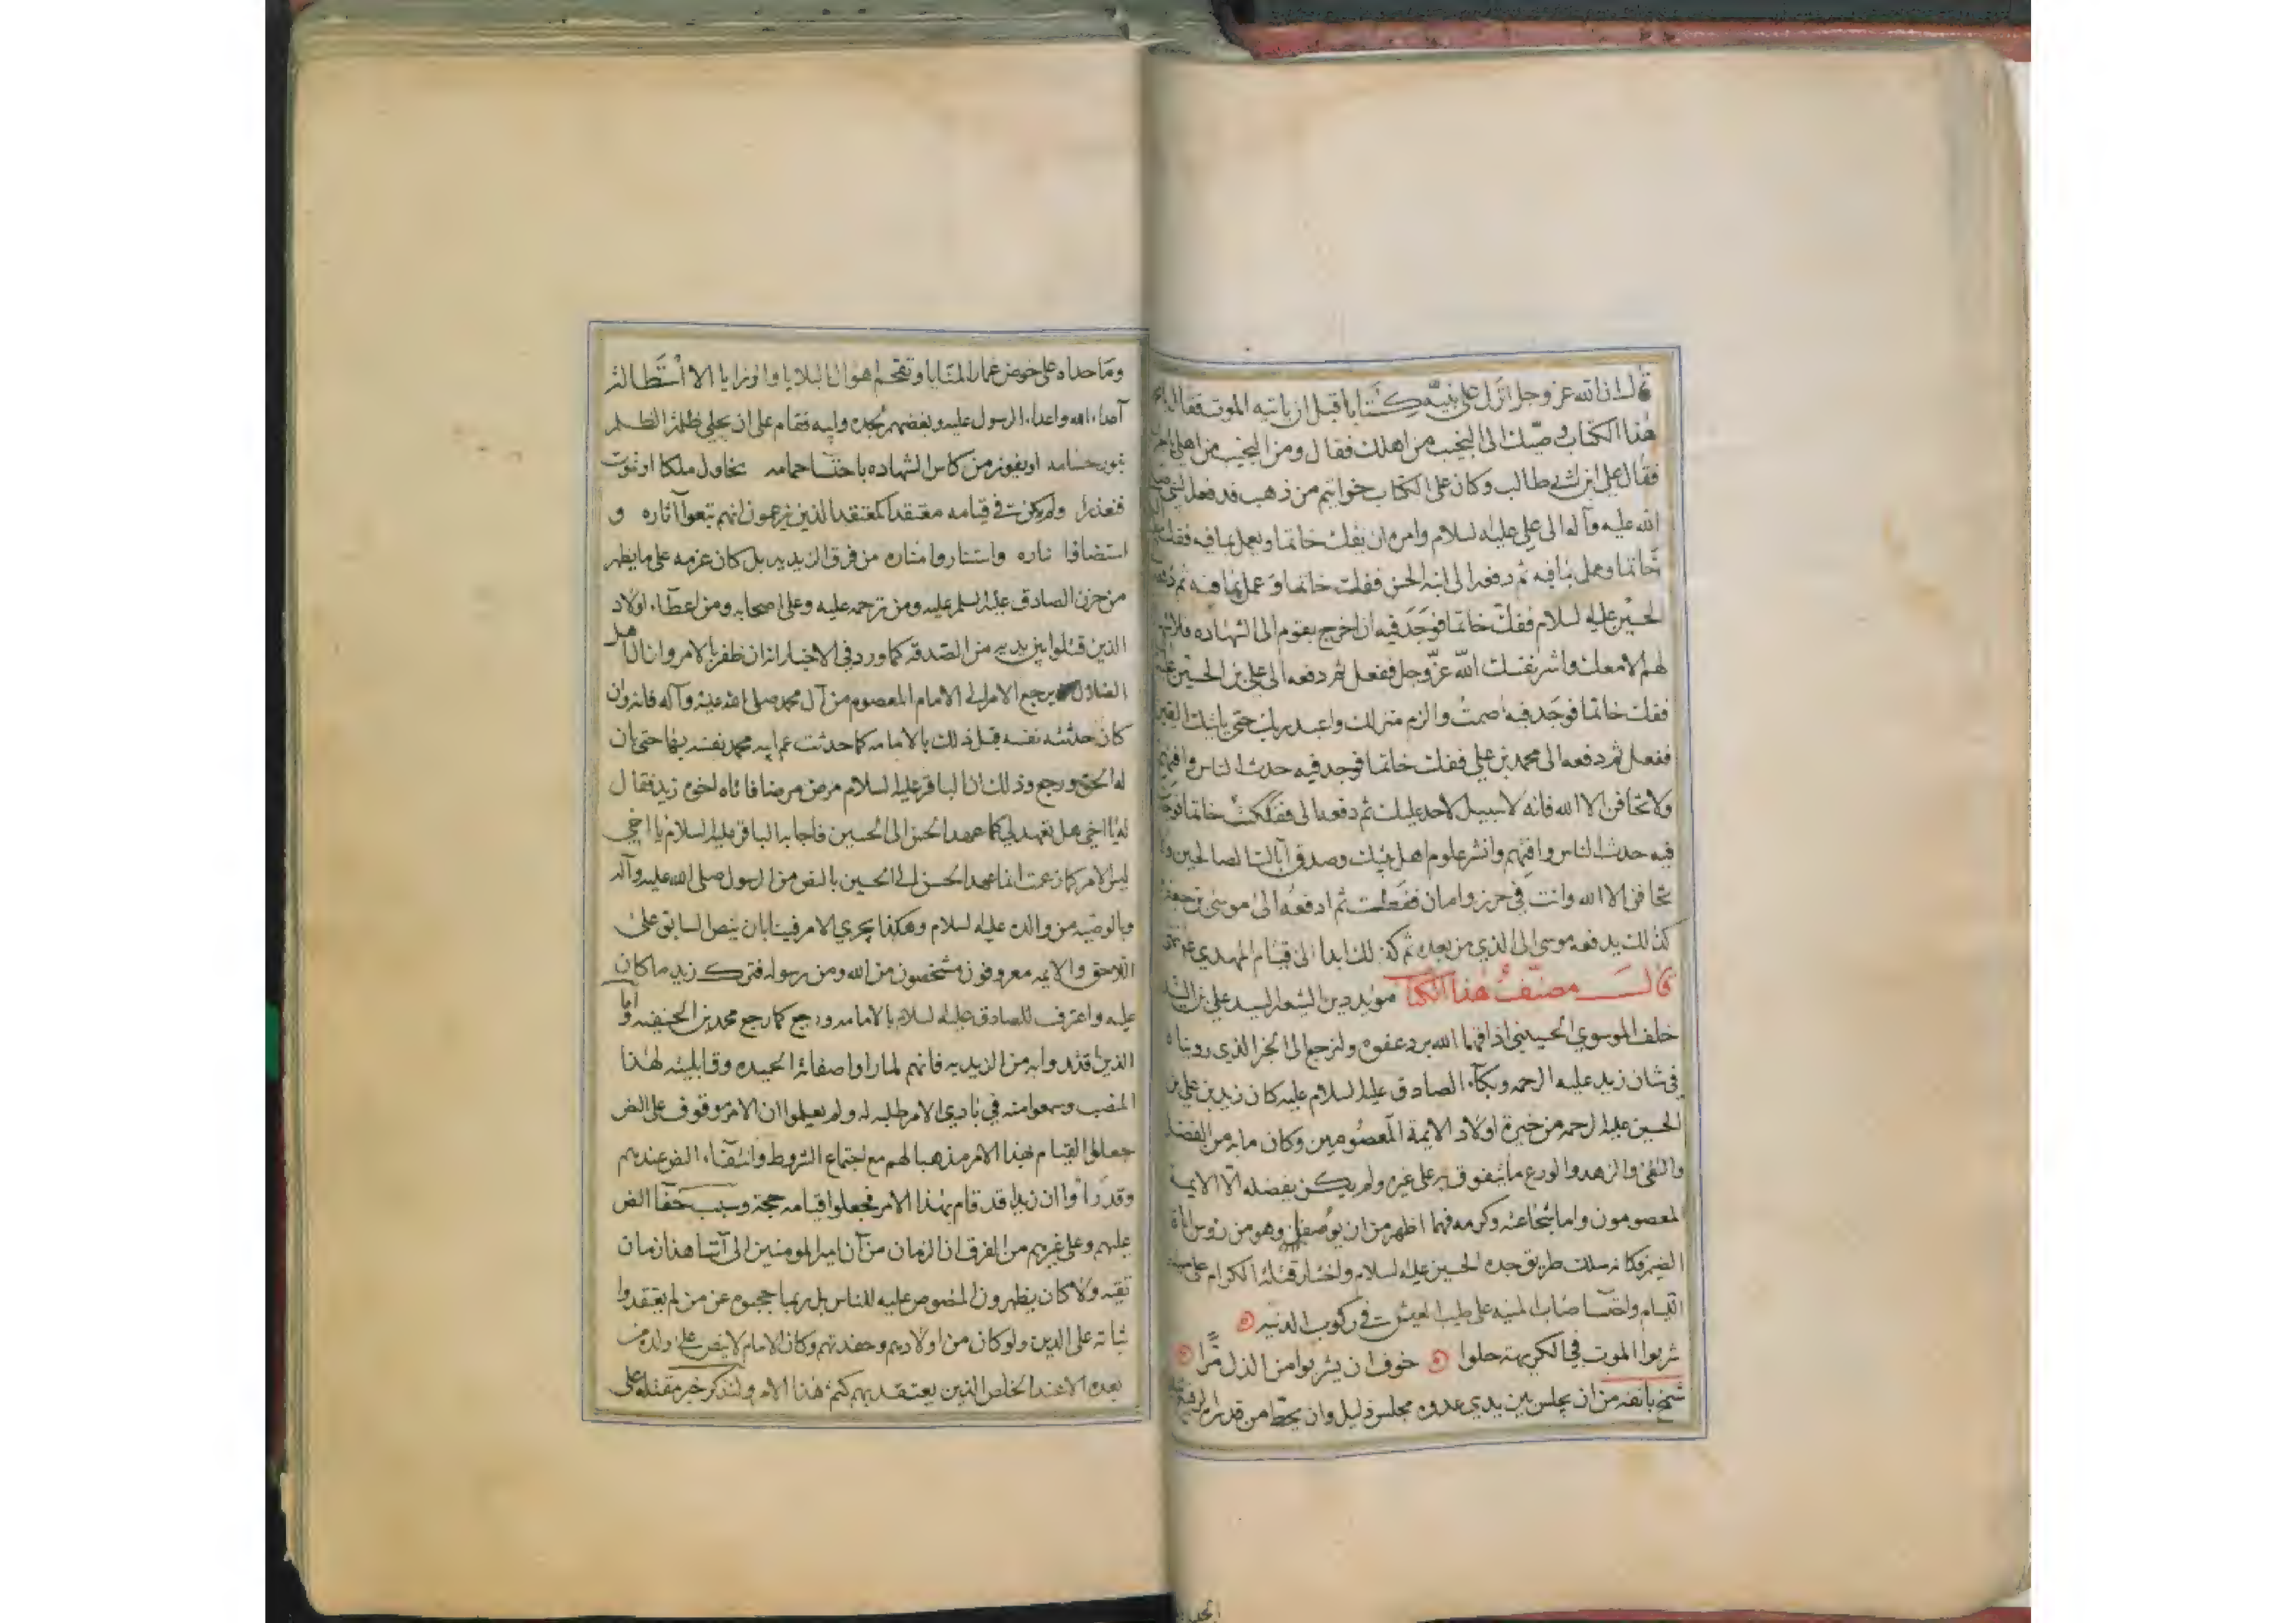 قال ان الله عز وجل انزل على نبيه كتابا قبل ان ياتيه الموت فقال
هذا الكتاب وصيتك الى النجيب من اهلك فقال ومن النجيب من اهلي
فقال علي ابن ابي طالب وكان على الكتاب خواتيم من ذهب فدفعه النبي
الله عليه وآله الى علي عليه السلام وامره ان يفك خاتما ويعمل بما فيه ففك
خاتما وعمل بما فيه ثم دفعه الى ابنه الحسن ففك خاتما وعمل بما فيه ثم
الحسين عليه السلام ففك خاتما فوجد فيه ان اخرج بقوم الى الشهاده فلا
لهم الا معك واشر نفسك الله عز وجل ففعل ثم دفعه الى علي بن الحسين
ففك خاتما فوجد فيه اصمت والزم منزلك واعبد ربك حتى ياتيك اليقين
ففعل ثم دفعه الى محمد بن علي ففك خاتما فوجد فيه حدث الناس وافتهم
ولا تخافن الا الله فانه لا سبيل لاحد عليك ثم دفعه الى ففككت خاتما
فيه حدث الناس وافتهم وانشر علوم اهل بيتك وصدق آبائك الصالحين ولا
تخافن الا الله وانت في حرز وامان ففعلت ثم ادفعه الى موسى بن جعفر
كذلك يدفعه موسى الى الذي من بعده ثم كذلك ابدا الى قيام المهدي
قال مصنف هذا الكتاب مؤيد دين الشعار السيد علي بن
خلف الموسوي الحسيني اذاقهما الله برد عفوه ولنرجع الى الخبر الذي رويناه
في شان زيد عليه الرحمه وبكاء الصادق عليه السلام عليه كان زيد بن علي بن
الحسين عليه الرحمه من خيرة اولاد الايمة المعصومين وكان ما به من الفضل
والتقى والزهد والورع ما يتفوق به على غيره ولم يكن يفضله الا الايمة
المعصومون واما شجاعته وكرمه فهما اظهر من ان يوصفا وهو من رؤس اباة
الضيم وكانه سلك طريق جده الحسين عليه السلام واختار قتلة الكرام على
اللئام على طيب العيش في ركوب الدنيه
شربوا الموت في الكريهة حلوا خوف ان يشربوا من الذل مرا
شمخ بانفه من ان يجلس بين يدي عدوه مجلس ذليل وان يحط من قدره
وما حداه على خوض غمار المنايا وتقحم اهوال البلايا والرزايا الا استطالة
اعداء الله واعداء الرسول عليه وبغضهم لجده وابيه فقام على ان يجلي ظلمة الظلم
بنور حسامه او يفوز من كاس الشهاده حمامه يحاول ملكا او يموت
فيعذرا ولم يكن في قيامه معتقدا كمعتقد الذين يزعمون انهم تبعوا آثاره و
استضاؤا ناره واستناروا مناره من فرق الزيديه بل كان عزمه على ما يظهر
من حزن الصادق عليه السلم عليه ومن ترحمه عليه وعلى اصحابه ومن اعطاء اولاد
الذين قتلوا بين يديه من الصدقه كما ورد في الاخبار انه ان ظفر بالامر وازال اهل
الضلال يرجع الامر الى الامام المعصوم من آل محمد صلى الله عليه وآله فانه وان
كان حدثته نفسه قبل ذلك بالامامه كما حدثت عم ابيه محمد نفسه بها حتى بان
له الحق ورجع وذلك ان الباقر عليه السلام مرض مرضا فاتاه اخوه زيد فقال
له يا اخي هل تعهد لي كما عهد الحسن الى الحسين فاجابه الباقر عليه السلام يا اخي
ليس الامر كما زعمت انما عهد الحسن الى الحسين بالنص من الرسول صلى الله عليه وآله
وبالوصيه من والده عليه السلام وهكذا يجري الامر فينا بان ينص السابق على
اللاحق والايمه معروفون مشخصون من الله ومن رسوله فترك زيد ما كان
عليه واعترف للصادق عليه السلام بالامامه ورجع كما رجع محمد بن الحنفيه واما
الذين قتدوا به من الزيديه فانهم لما راوا صفاته الحميده وقابليته لهذا
المنصب وسمعوا منه في بادي الامر طلبه له ولم يعلموا ان الامر موقوف على النص
جعلوا القيام بهذا الامر مذهبا لهم مع اجتماع الشروط وانتفاء النص عندهم
وقد راوا ان زيدا قد قام بهذا الامر فجعلوا قيامه حجة وسبب خفاء النص
عليهم وعلى غيرهم من الفرق ان الزمان من آن امير المومنين الى آننا هذا زمان
تقيه ولا كان يظهرون المنصوص عليه للناس بل ربما حجبوه عن من لم يعتقدوا
ثباته على الدين ولو كان من اولادهم وحفدتهم وكان الامام لا ينص على ولده من
بعده الا عند الخلص الذين يعتقد بهم كتم هذا الامر ولنذكر خبر مقتله على